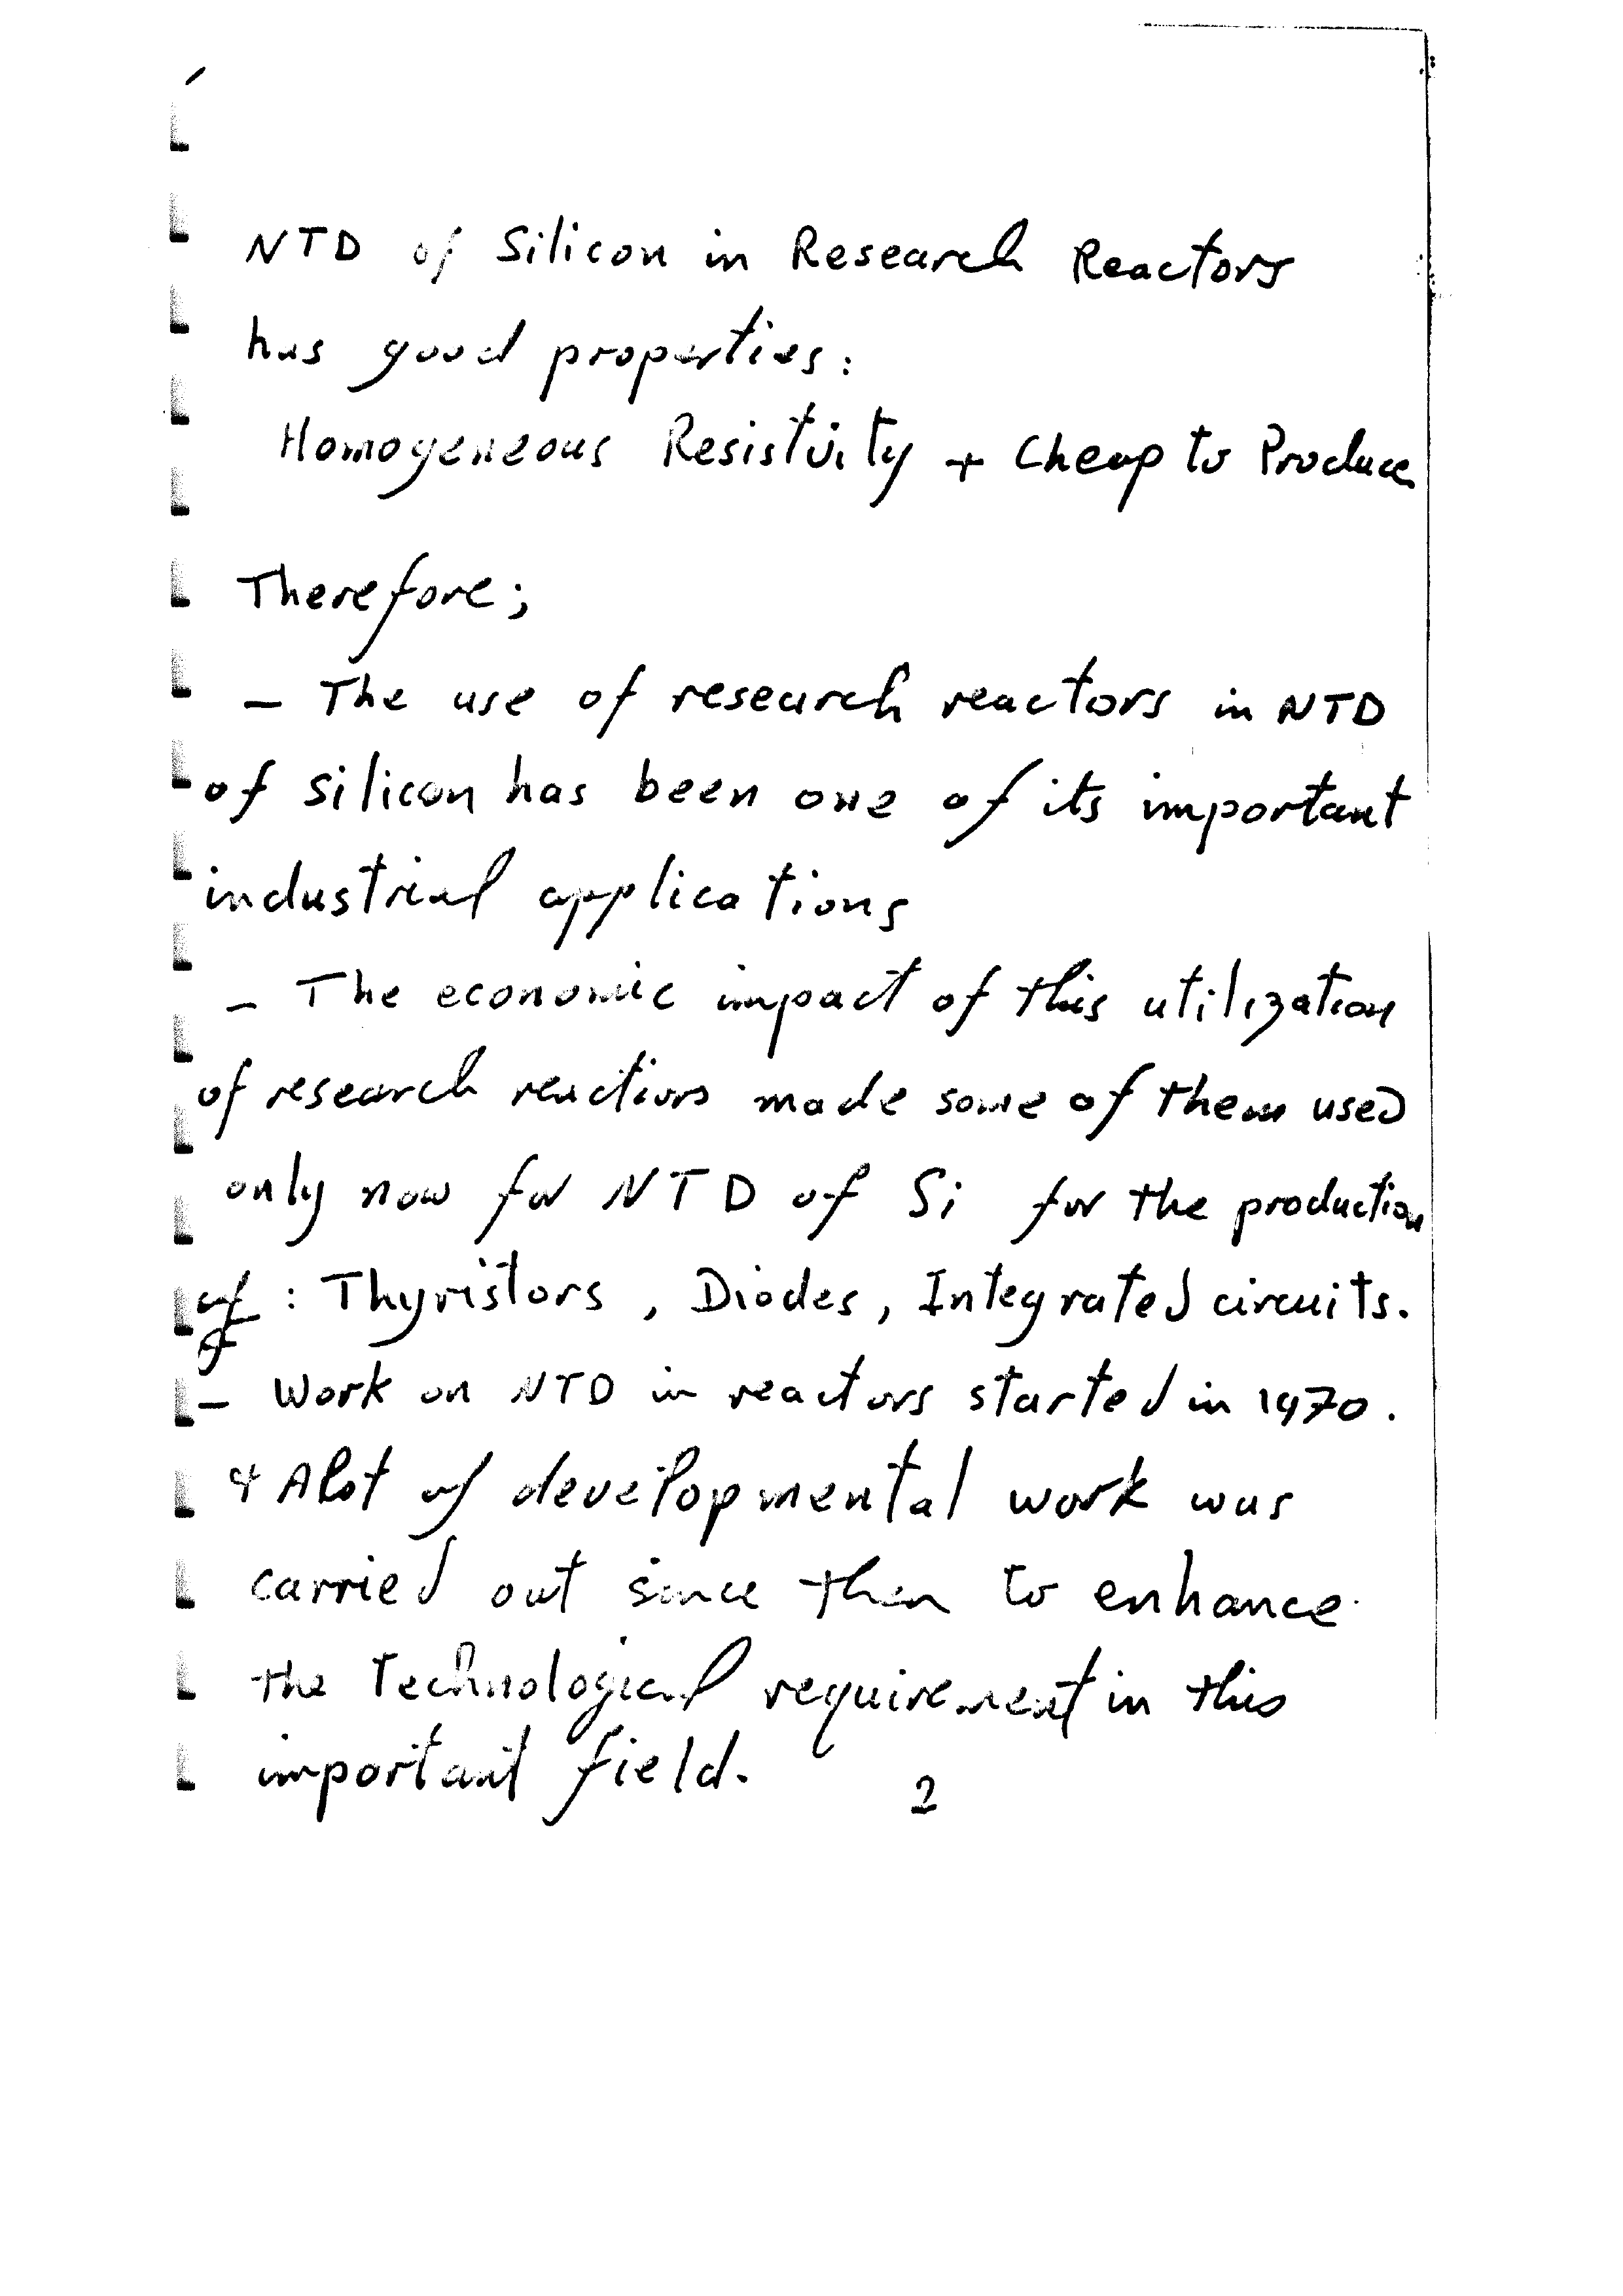 NTD of Silicon in Research Reactors
has good properties:
Homogeneous Resistivity + Cheap to Produce
Therefore;
- The use of research reactors in NTD
of silicon has been one of its important
industrial applications
- The economic impact of this utilization
of research reactions made some of them used
only now for NTD of Si for the production
of : Thyristors, Diodes, Integrated circuits.
- Work on NTD in reactors started in 1970.
& Alot of developmental work was
carried out since then to enhance
the Technological requirement in this
important field.
2